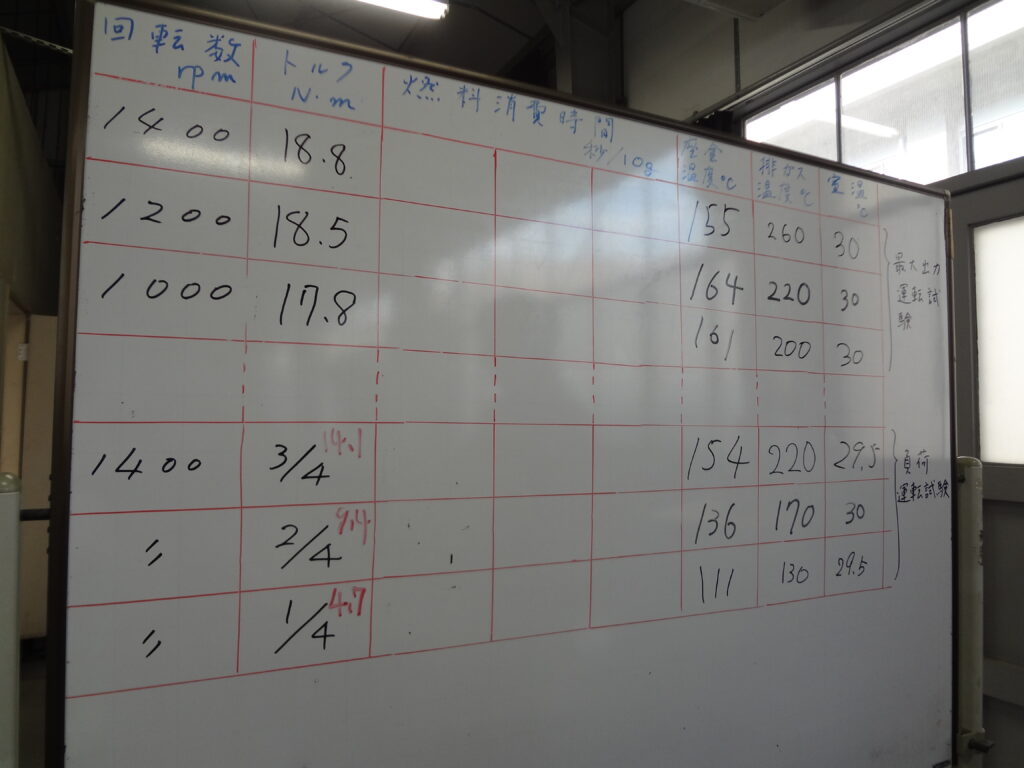 回転数 トルク 燃料消費時間
rpm N·m 秒/10g 座金温度℃ 排ガス温度℃ 室温℃
1400 18.8 155 260 30
1200 18.5 164 220 30
1000 17.8 161 200 30
最大出力
運転試
験
1400 3/4 14.1 154 220 29.5
〃 2/4 9.4 136 170 30
〃 1/4 4.7 111 130 29.5
負荷
運転試験